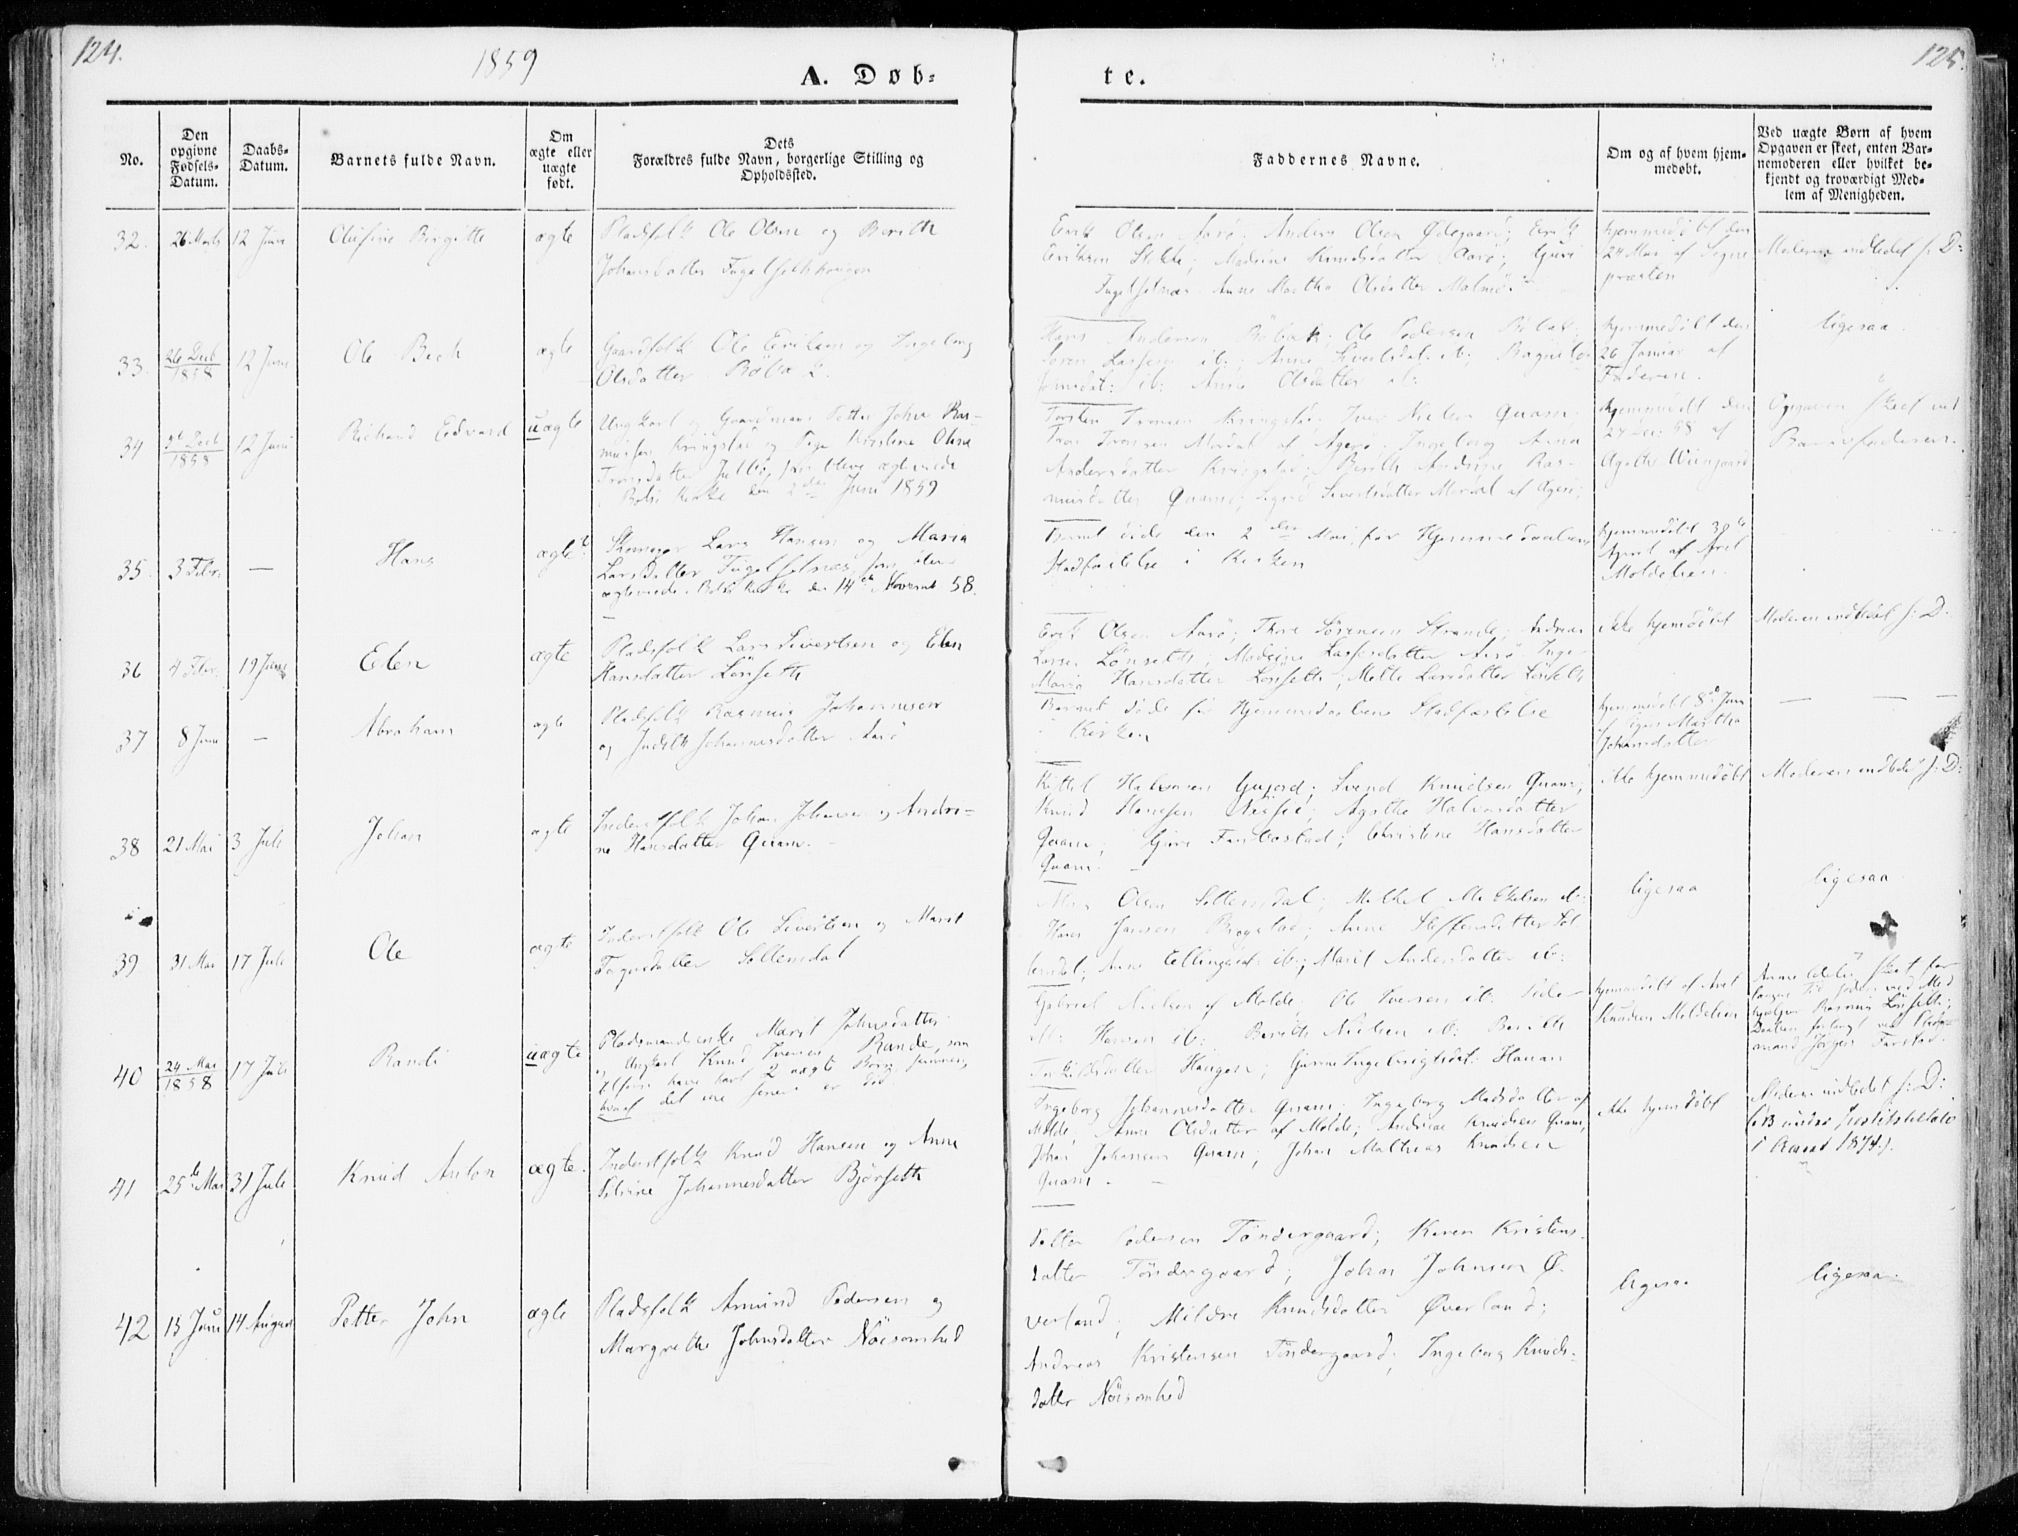 124.
1859
A. Døb-
te.
125.
No.
Den
opgivne
Fødsels-
Datum.
Daabs-
Datum.
Barnets fulde Navn.
Om
ægte eller
uægte
født.
Dets
Forældres fulde Navn, borgerlige Stilling og
Opholdssted.
Faddernes Navne.
Om og af hvem hjem-
medøbt.
Ved uægte Børn af hvem
Opgaven er skeet, enten Bar-
nemoderen eller hvilket be-
kjendt og troværdigt Med-
lem af Menigheden.
32. 26 Marts 12 Juni Olufine Birgitte ægte Pladsfolk Ole Olsen og Berith
Johansdatter Fugelsethhougen
Erik Olsen Aarø; Anders Olsen Ødegaard; Erik
Eriksen Stokke; Madsine Knudsdatter Aarø; Guri
Fugelsetnæs. Anne Martha Olsdatter Malmø.
hjemmedøbt den
24 Mai af Sogne
præsten
Moderen indledet f: D:
33. 26 Decb 1858 12 Juni Ole Bech ægte Gaardfolk Ole Eriksen og Ingeborg
Olsdatter Røbæk.
Hans Andersen Røbæk; Ole Pedersen Røbæk;
Søren Lassesen ib:; Anne Sivertsdat: ib:
ib: Anne Olsdatter ib:
hjemmedøbt den
26 Januar af
Faderen.
ligesaa.
34 Decb 1858 12 Juni Richard Edvard uægte Ungkarl og Gaardmand Petter John Ras-
musen Kringstad og Pige Kristine Oline
Tronsdatter Julbø, som bleve ægteviede
Bolsø Kirke den 2den Juni 1859
Torsten Tronsen Kringstad; Iver Nielsen Quam;
Tron Tronsen Mordal af Agerø; Ingeborg Anna
Andersdatter Kringstad; Berith Andrine Ras-
musdatter Quam; Sigrid Sivertsdatter Mordal af Agerø;
hjemmedøbt den
24 Dec: 58 af
Agathe Wiingaard
Opgaven skeet ved
Barnefaderen.
35. 3 Febr. — Hans ægte Skomager Lars Hansen og Maria
Larsdatter Fugelsetnæs, som bleve
ægteviede i Bolsø Kirke den 14de Novemb 58.
Barnet døde den 2den Mai, før Hjemmedaabens
Stadfæstelse i Kirken
hjemmedøbt 30te
April af Aret
Moldelien.
36 4 Febr. 19 Juni Elen ægte Pladsfolk Lars Sivertsen og Elen
Hansdatter Lønseth
Erik Olsen Aarø; Thore Sørensen Strande; Andreas
Larsen Lønseth; Madsine Lassesdatter Aarø; Inge-
Maria Hansdatter Lønseth; Mette Larsdatter Lønseth
ikke hjemdøbt
Moderen indledet f: D.
37 8 Juni — Abraham ægte Pladsfolk Rasmus Johannesen
og Judith Johannesdatter Aarø
Barnet døde før Hjemmedaabens Stadfæstelse
i Kirken
hjemmedøbt 8de Juni
af Pigen Martha
Johansdatter
— — —
38 21 Mai 3 Juli Johan ægte Inderstfolk Johan Johnsen og Andri-
ne Hansdatter Quam.
Kittel Halvorsen Gujord; Svend Knudsen Quam;
Knud Hansen Agathe Halvorsdatter
Quam; Guri Fanbostad; Christine Hansdatter
Quam. —
ikke hjemmedøbt
Moderen indledet f: D:
39 31 Mai 17 Juli Ole ægte Inderstfolk Ole Sivertsen og Marit
Sollemdal
Olsen Sollemdal; Mikkel Mikkelsen ib:
Hans Jansen Anne Steffensdatter Sol
lemdal; Anne Ellingsdat: ib:; Marit Andersdatter ib:
ligesaa
ligesaa.
40 24 Mai 1858 17 Juli Randi uægte Pladsmandsenke Marit Johnsdatter
og Ungkarl Knud Iversen Rande, som
tilforn have havt 2 uægte Børn sammen,
hvoraf det ene senere er død
Gabriel Nielsen af Molde; Ole Iversen ib: Peder
M: Hansen ib: Berith Nielsen ib: Berith
Haugen; Gjertine Ingebrigtsdat: Hauan
hjemmedøbt af Aret
Knudsen Moldelien
Anmeldelse skeet for
længere Tid siden ved Med
hjelper Rasmus Lønseth;
Daaben forlangt ved Plads-
mand Jørgen Farstad.
41 25de Mai 31 Juli Knud Anton ægte. Inderstfolk Knud Hansen og Anne
Johannesdatter Bjørseth
Ingeborg Johannesdatter Quam; Ingeborg Madsdatter af
Molde; Anne Olsdatter af Molde; Andreas Knudsen Quam;
Johan Johansen Quam; Johan Mathias Knudsen
Quam. —
ikke hjemdøbt
Moderen indledet f: D:
i Aaret 1874).
42 13 Juni 14 August Petter John ægte Pladsfolk Amund Pedersen og
Margrethe Johnsdatter Nøisomhed
Petter Pedersen Tøndergaard; Karen Kristens-
datter Tøndergaard; Johan Johnsen Ø-
verland; Mildri Knudsdatter Øverland;
Andreas Kristensen Tøndergaard; Ingeborg Knuds-
datter Nøisomhed
ligesaa
ligesaa.